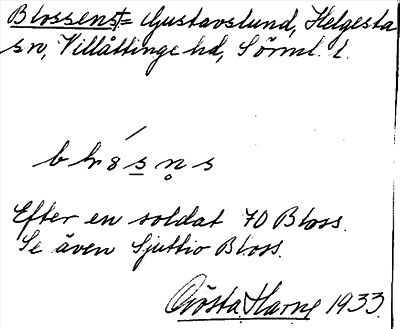 Blossens†= Gustavslund, Helgesta
sn, Villåttinge hd, Sörml. l.
Efter en soldat 70 Bloss.
Se även Sjuttio Bloss.
Gösta Harne 1933.